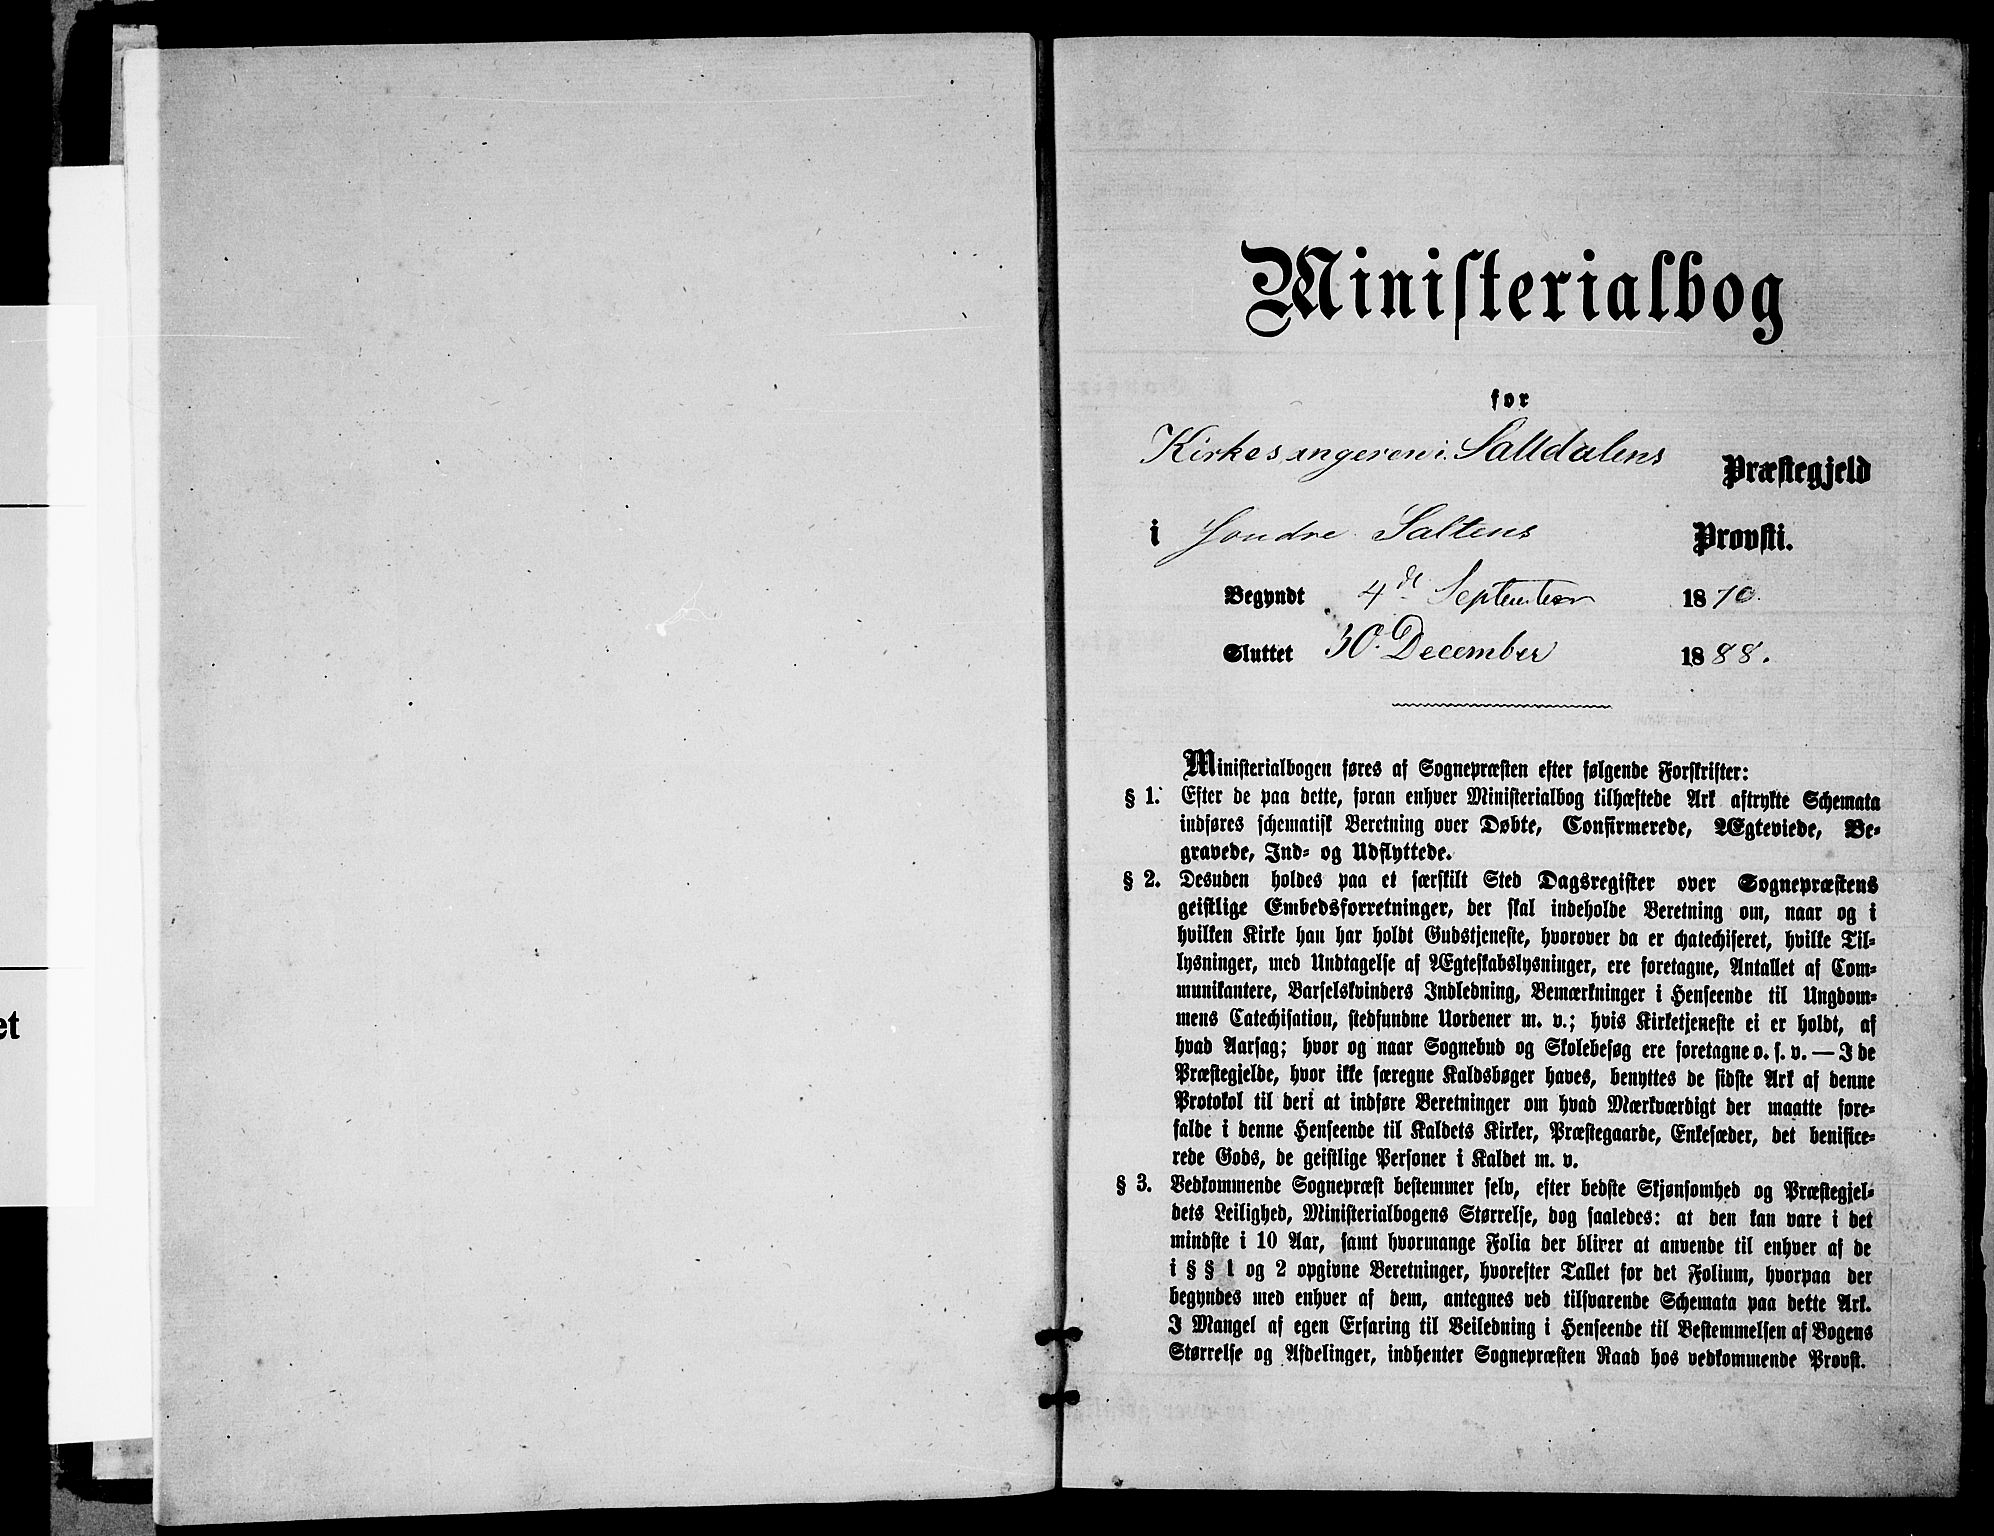 et
Ministerialbog
for
Kirkesangeren i Saltdalens Præstegjeld
i Søndre Saltens Provsti.
Begyndt 4de September 1870.
Sluttet 30. December 1888.
Ministerialbogen føres af Sognepræsten efter følgende Forskrifter:
§ 1. Efter de paa dette, foran enhver Ministerialbog tilhæftede Ark aftrykte Schemata
indføres schematisk Beretning over Døbte, Confirmerede, Ægteviede, Be-
gravede, Ind- og Udflyttede.
§ 2. Desuden holdes paa et særskilt Sted Dagsregister over Sognepræstens
geistlige Embedsforretninger, der skal indeholde Beretning om, naar og i
hvilken Kirke han har holdt Gudstjeneste, hvorover da er chatechiseret, hvilke Til-
lysninger, med Undtagelse af Ægteskabslysninger, ere foretagne, Antallet af Com-
munikantere, Barselskvinders Indledning, Bemærkninger i Henseende til Ungdom-
mens Catechisation, stedfundne Uordener m. v.; hvis Kirketjeneste ei er holdt, af
hvad Aarsag; hvor og naar Sognebud og Skolebesøg ere foretagne o. s. v. — I de
Præstegjelde, hvor ikke særegne Kaldsbøger haves, benyttes de sidste Ark af denne
Protokol til deri at indføre Beretninger om hvad Mærkværdigt der maatte fore-
falde i denne Henseende til Kaldets Kirker, Præstegaarde, Enkesæder, det benifice-
rede Gods, de geistlige Personer i Kaldet m. v.
§ 3. Vedkommende Sognepræst bestemmer selv, efter bedste Skjønsomhed og Præstegjel-
dets Leilighed, Ministerialbogens Størrelse, dog saaledes: at den kan vare i det
mindste i 10 Aar, samt hvormange Folia der bliver at anvende til enhver af de
i § § 1 og 2 opgivne Beretninger, hvorefter Tallet for det Folium, hvorpaa der
begyndes med enhver af dem, antegnes ved tilsvarende Schemata paa dette Ark.
I Mangel af egen Erfaring til Veiledning i Henseende til Bestemmelsen af Bogens
Størrelse og Afdelinger, indhenter Sognepræsten Raad hos vedkommende Provst.